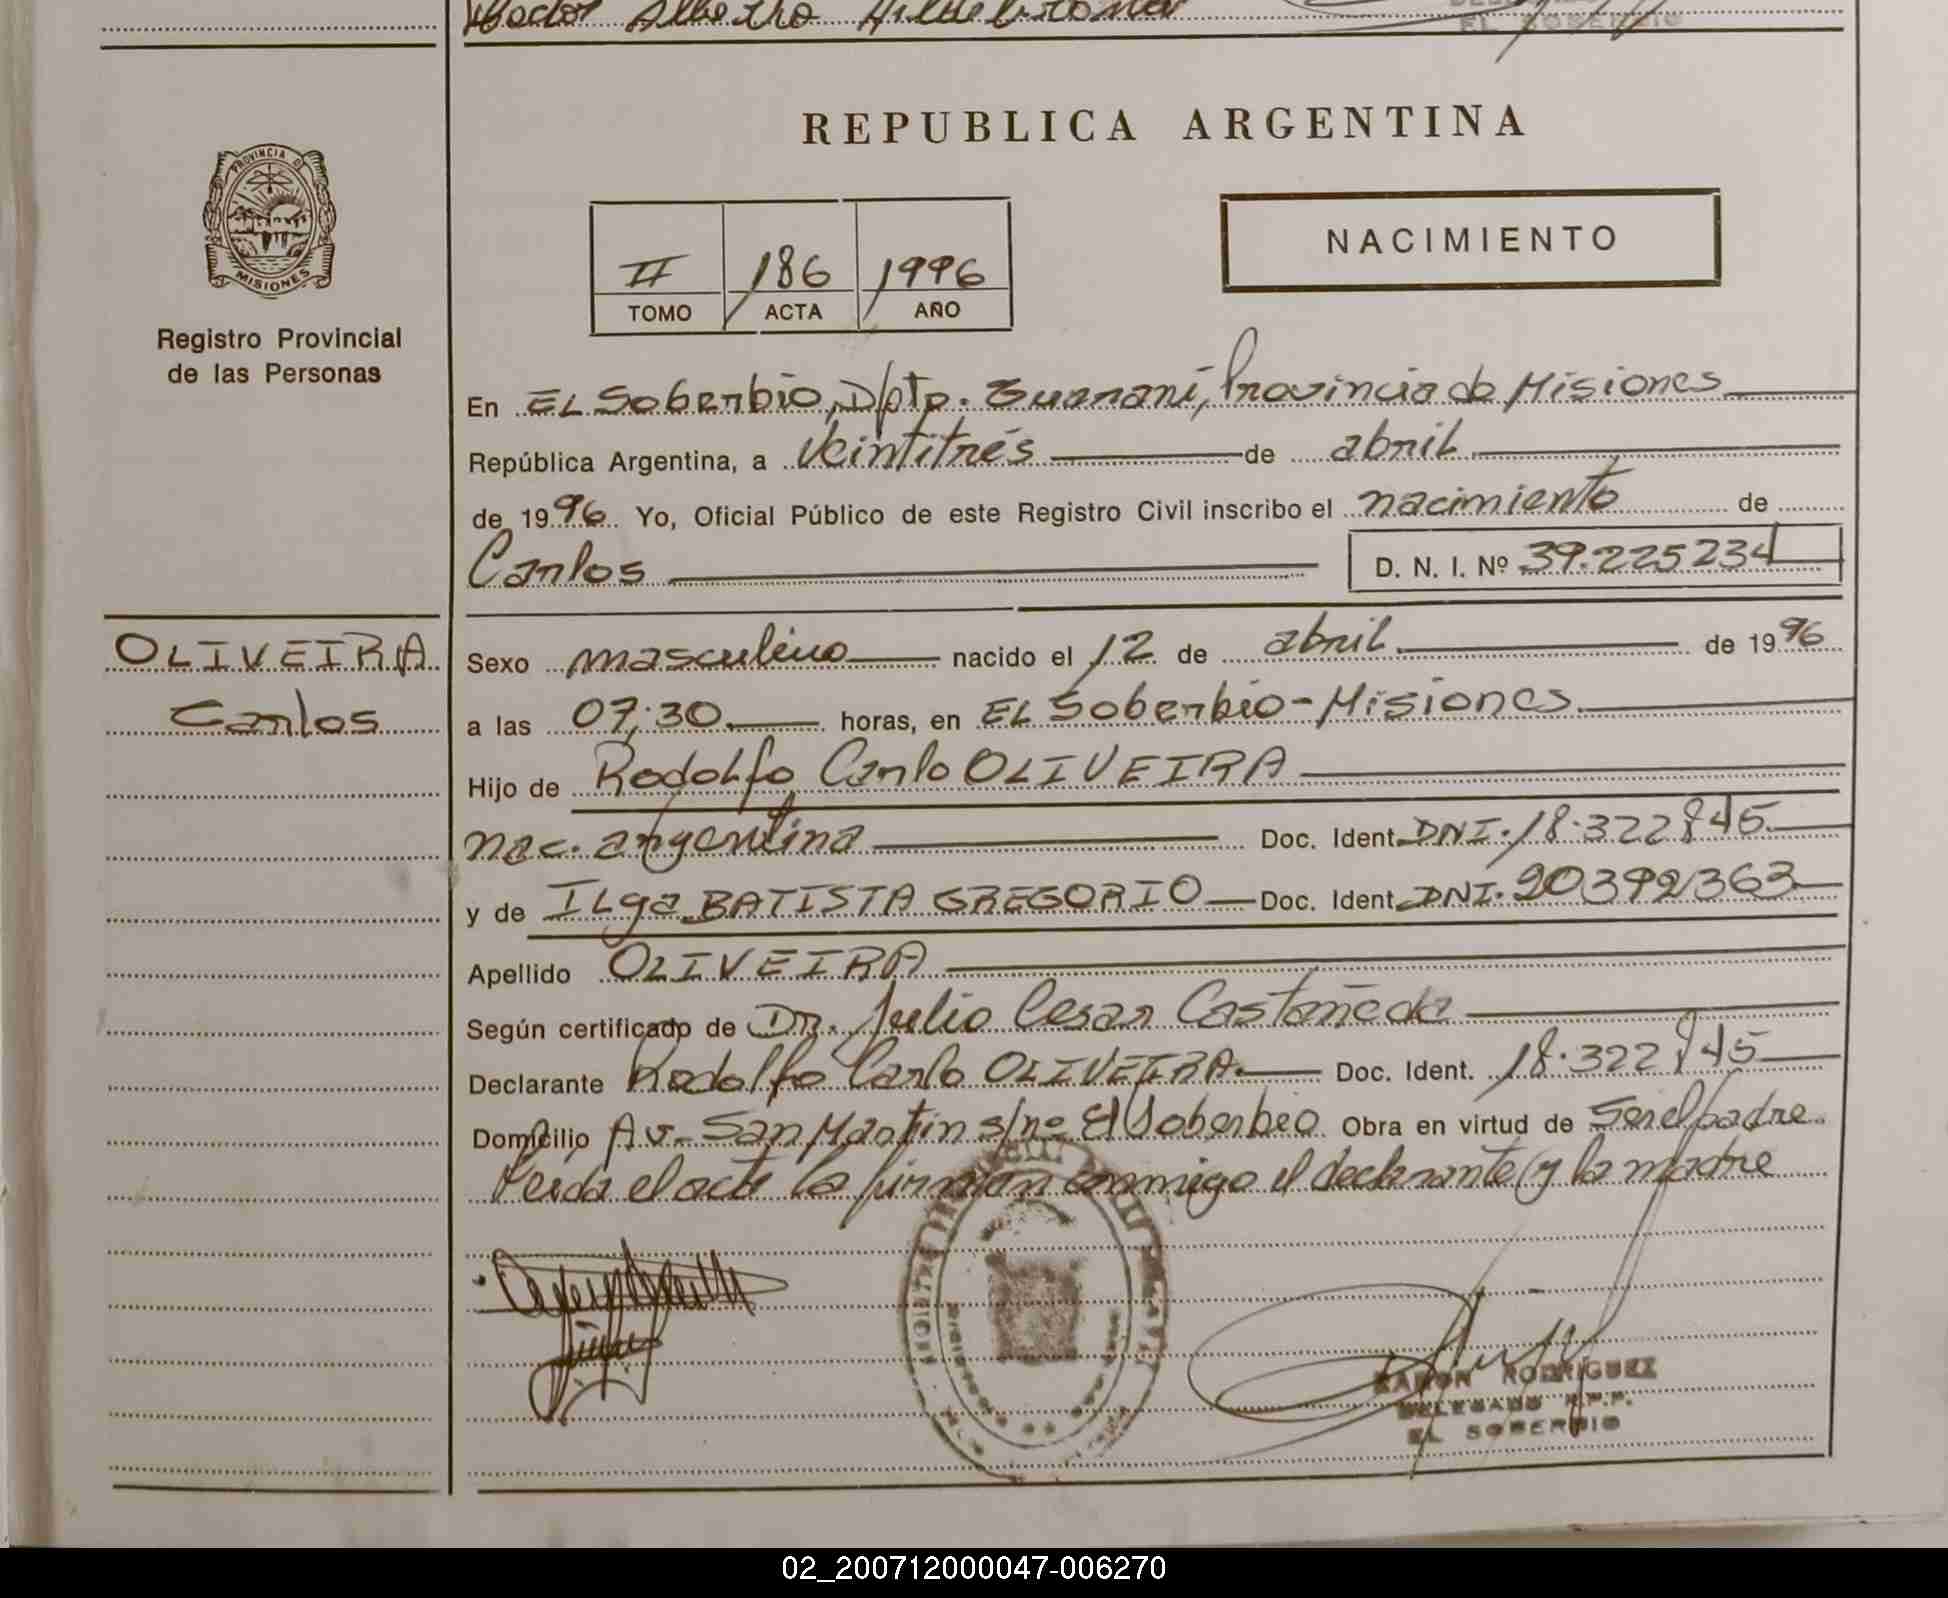 Alberto Hildebrando
EL SOBERBIO
PROVINCIA D
MISIONES
Registro Provincial
de las Personas
REPUBLICA ARGENTINA
II 186 1996
TOMO ACTA AÑO
NACIMIENTO
En EL Soberbio, Dpto. Guaraní, Provincia de Misiones
República Argentina, a Veintitrés de abril
de 1996 Yo, Oficial Público de este Registro Civil inscribo el nacimiento de
Carlos D. N. I. Nº 39.225234
OLIVEIRA
Carlos
Sexo masculino nacido el 12 de abril de 1996
a las 07:30 horas, en EL Soberbio-Misiones
Hijo de Rodolfo Carlo OLIVEIRA
nac. argentina Doc. Ident. DNI. 18.322845
y de ILga BATISTA GREGORIO Doc. Ident. DNI. 20392363
Apellido OLIVEIRA
Según certificado de Dr. Julio Cesar Castañeda
Declarante Rodolfo Carlo OLIVEIRA. Doc. Ident. 18.322845
Domicilio Av. San Martin s/nº El Soberbio Obra en virtud de Ser el padre.
Leida el acta la firman conmigo el declarante y la madre
RAMON RODRIGUEZ
DELEGADO R.P.P.
EL SOBERBIO
02_200712000047-006270